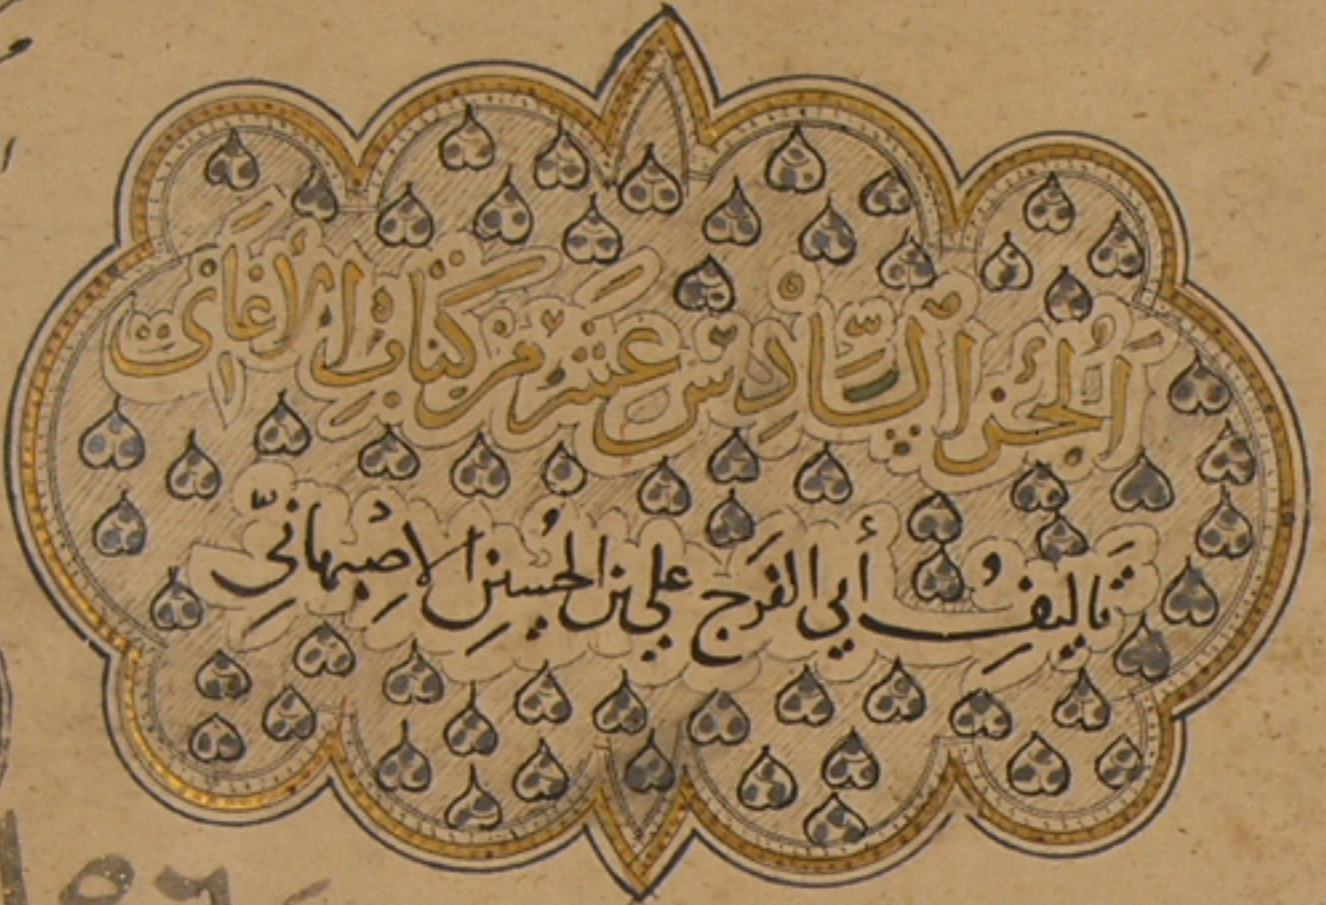 الجزء السَّادِس عشر من كتاب الاغانى
تاليف أبي الفَرَج علي بن الحُسين الاصبهانيّ